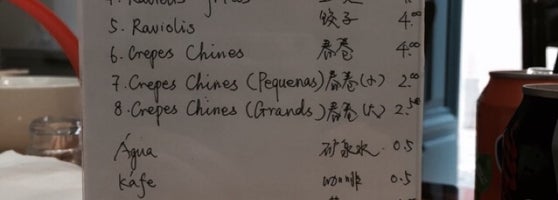 5. Raviolis 饺子 4.00
6. Crepes Chines 春卷 4.00
7. Crepes Chines (Pequenas) 春卷(小) 2.00
8. Crepes Chines (Grands) 春卷(大) 2.50
Água 矿泉水 0.5
Káfe 咖啡 0.5